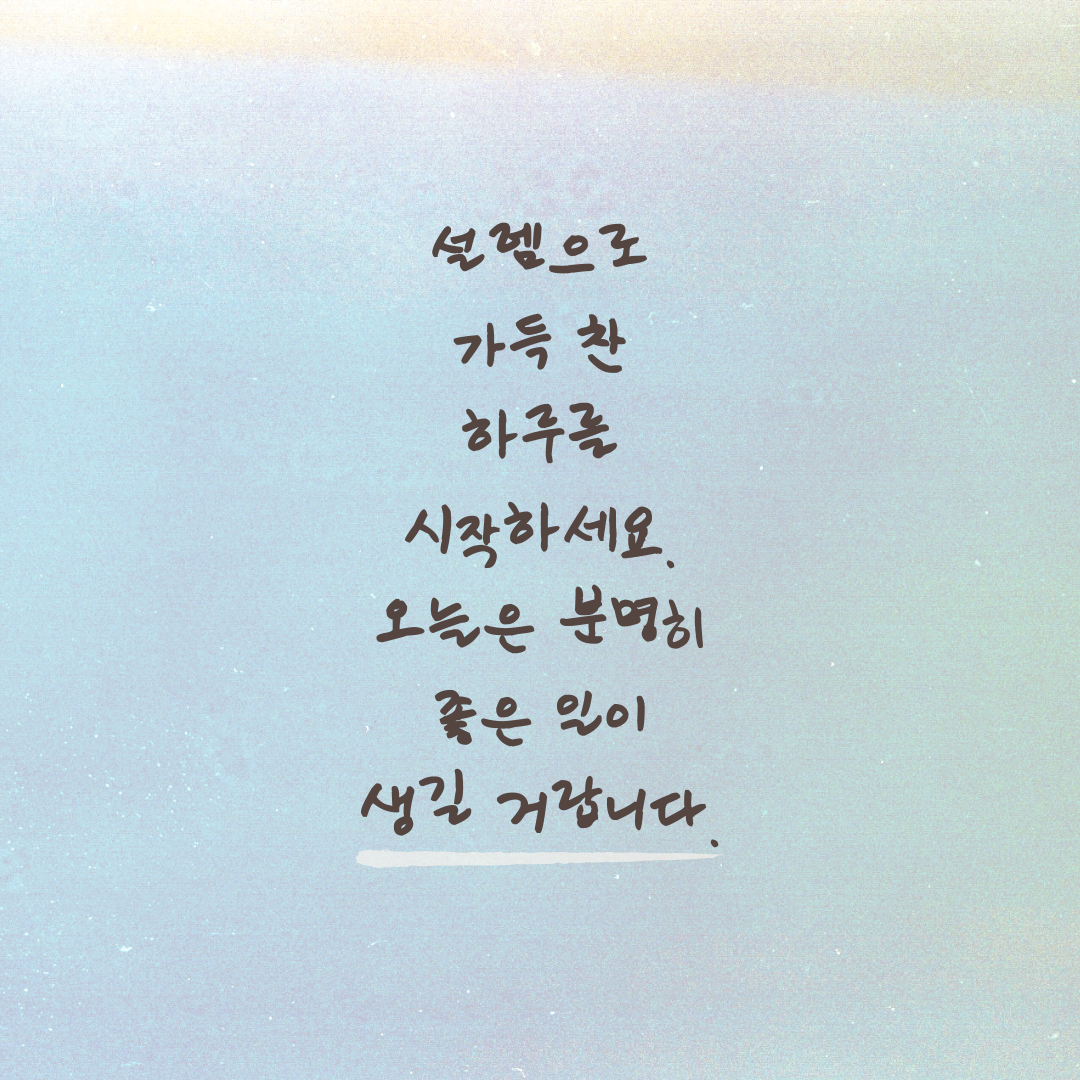 설렘으로
가득 찬
하루를
시작하세요.
오늘은 분명히
좋은 일이
생길 거랍니다.